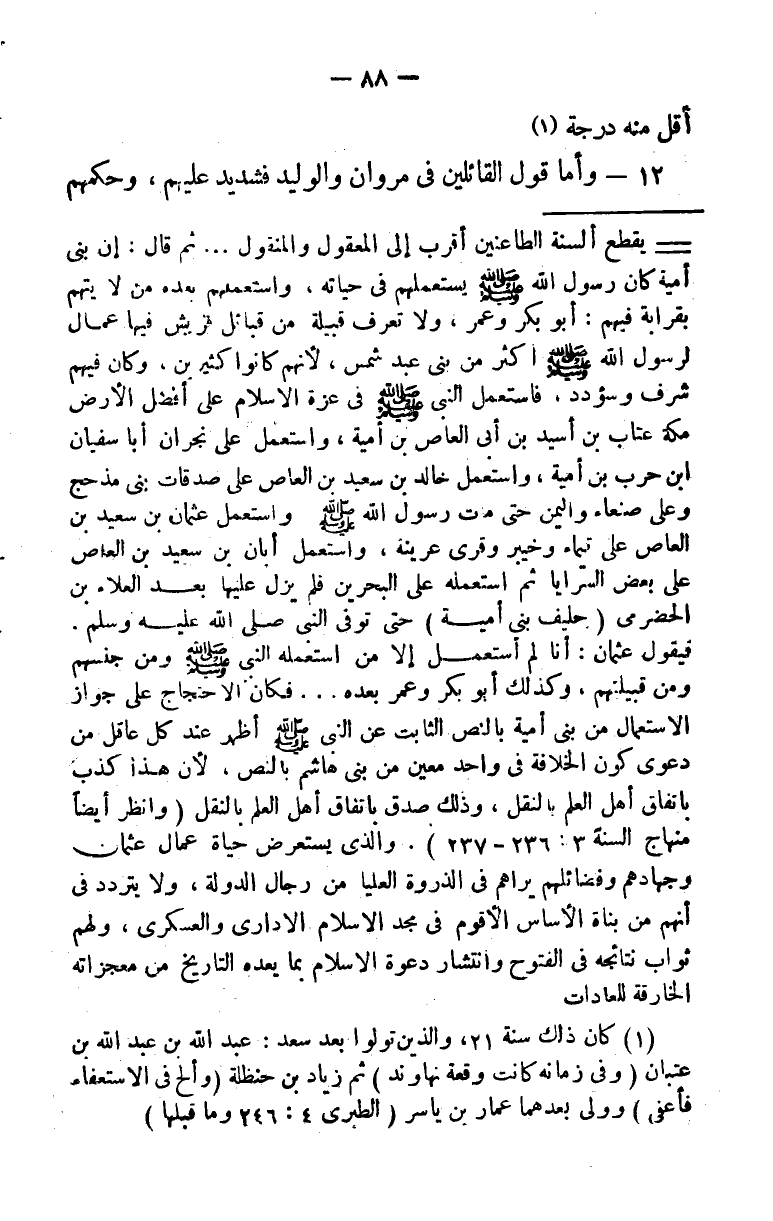 — ٨٨ —
أقل منه درجة (١)
١٢ — وأما قول القائلين فى مروان والوليد فشديد عليهم ، وحكمهم
= يقطع ألسنة الطاعنين أقرب إلى المعقول والمنقول ... ثم قال : إن بنى
أمية كان رسول الله ﷺ يستعملهم فى حياته ، واستعملهم بعده من لا يتهم
بقرابة فيهم : أبو بكر وعمر ، ولا تعرف قبيلة من قبائل قريش فيها عمال
لرسول الله ﷺ أكثر من بنى عبد شمس ، لأنهم كانوا كثيرين ، وكان فيهم
شرف وسؤدد ، فاستعمل النبى ﷺ فى عزة الاسلام على أفضل الأرض
مكة عتاب بن أسيد بن أبى العاص بن أمية ، واستعمل على نجران أبا سفيان
ابن حرب بن أمية ، واستعمل خالد بن سعيد بن العاص على صدقات بنى مذحج
وعلى صنعاء واليمن حتى مات رسول الله ﷺ واستعمل عثمان بن سعيد بن
العاص على تيماء وخيبر وقرى عرينة ، واستعمل أبان بن سعيد بن العاص
على بعض السرايا ثم استعمله على البحرين فلم يزل عليها بعد العلاء بن
الحضرمى ( حليف بنى أمية ) حتى توفى النبى صلى الله عليه وسلم .
فيقول عثمان : أنا لم أستعمل إلا من استعمله النبى ﷺ ومن جنسهم
ومن قبيلتهم ، وكذلك أبو بكر وعمر بعده ... فكان الاحتجاج على جواز
الاستعمال من بنى أمية بالنص الثابت عن النبى ﷺ أظهر عند كل عاقل من
دعوى كون الخلافة فى واحد معين من بنى هاشم بالنص ، لأن هذا كذب
باتفاق أهل العلم بالنقل ، وذلك صدق باتفاق أهل العلم بالنقل ( وانظر أيضاً
منهاج السنة ٣ : ٢٣٦ – ٢٣٧ ) . والذى يستعرض حياة عمال عثمان
وجهادهم وفضائلهم يراهم فى الذروة العليا من رجال الدولة ، ولا يتردد فى
أنهم من بناة الأساس الأقوم فى مجد الاسلام الادارى والعسكرى ، ولهم
ثواب نتائجه فى الفتوح وانتشار دعوة الاسلام بما يعده التاريخ من معجزاته
الخارقة للعادات
(١) كان ذاك سنة ٢١، والذين تولوا بعد سعد : عبد الله بن عبد الله بن
عتبان ( وفى زمانه كانت وقعة نهاوند ) ثم زياد بن حنظلة (وألح فى الاستعفاء
فأعفى ) وولى بعدهما عمار بن ياسر ( الطبرى ٤ : ٢٤٦ وما قبلها )